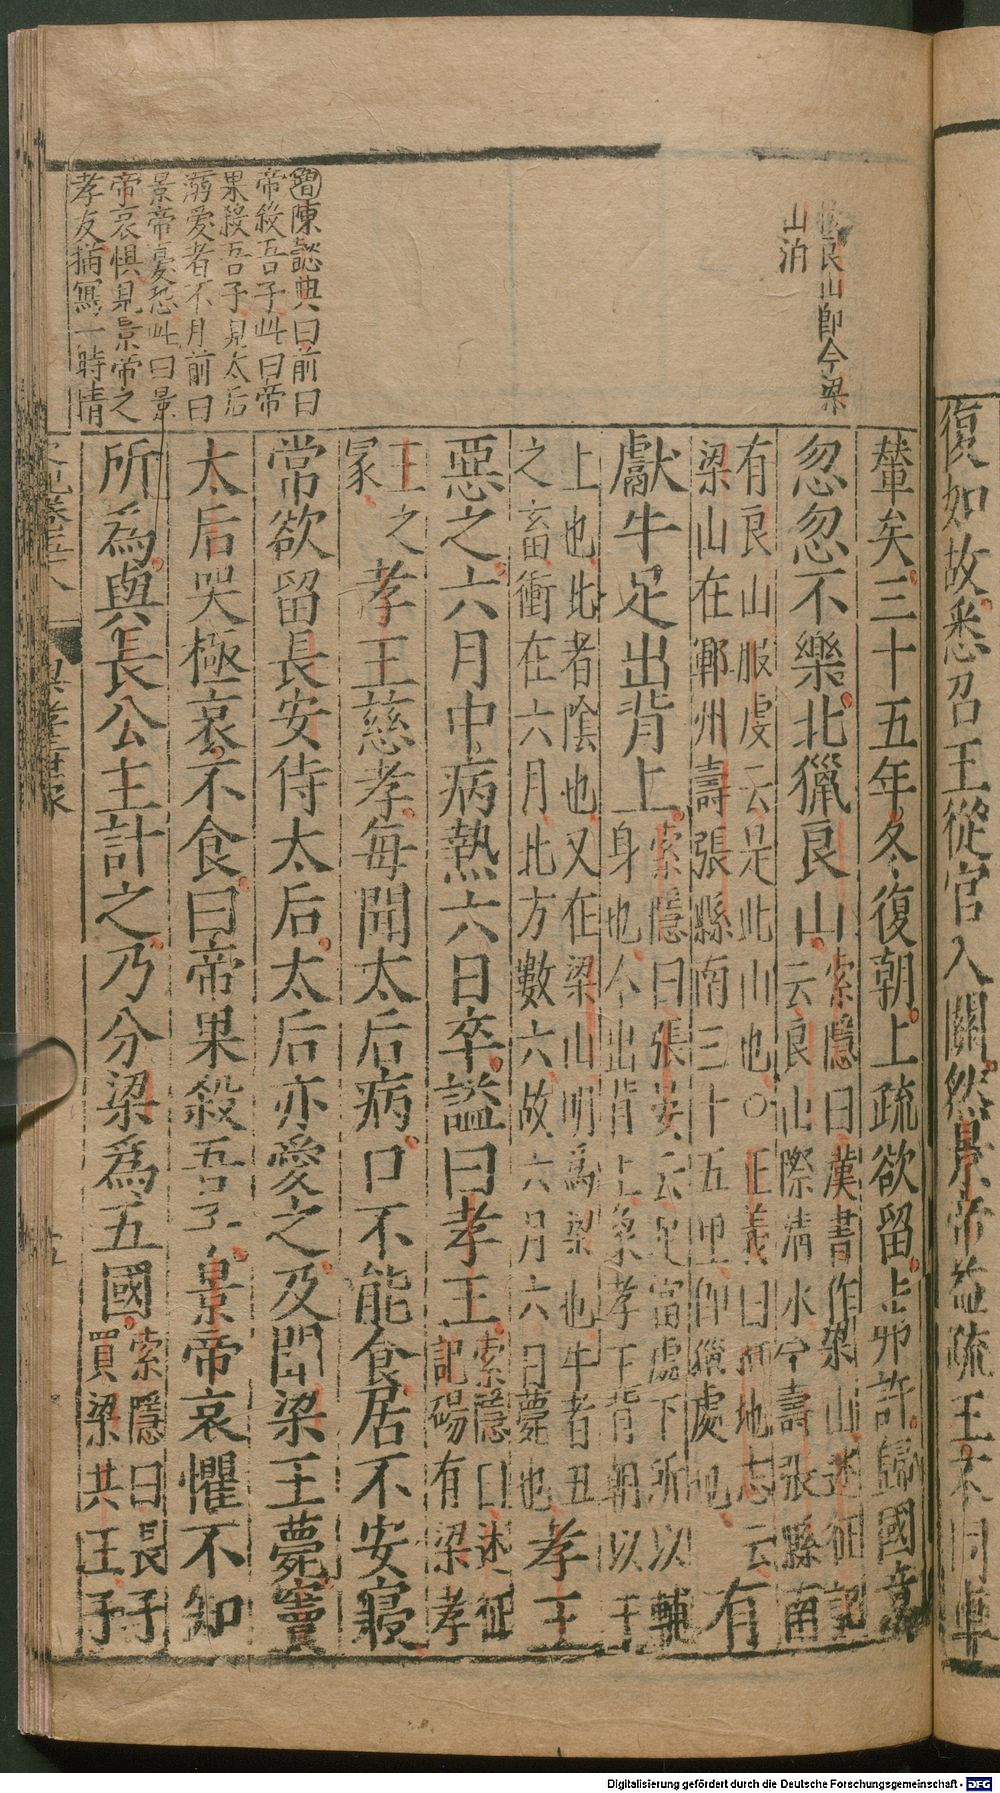 復如故悉召王從官入關然景帝益疏王不同車
輦矣三十五年冬復朝上疏欲留上弗許歸國意
忽忽不樂北獵良山索隱曰漢書作梁山述征記
云良山際清水今壽張縣南
有良山服虔云是此山也○正義曰括地志云
梁山在鄆州壽張縣南三十五里卽獵處也有
獻牛足出背上索隱曰張晏云足當處下所以輔
身也今出背上象孝王背朝以干
上也北者陰也又在梁山明爲梁也牛者丑
之畜衝在六月北方數六故六月六日薨也孝王
惡之六月中病熱六日卒諡曰孝王索隱曰述征
記碭有梁孝
王之
冢孝王慈孝每聞太后病口不能食居不安寢
常欲留長安侍太后太后亦愛之及聞梁王薨竇
太后哭極哀不食曰帝果殺吾子景帝哀懼不知
所爲與長公主計之乃分梁爲五國索隱曰長子
買梁共王子
良山卽今梁
山泊
陳懿典曰前曰
帝殺吾子此曰帝
果殺吾子見太后
溺愛者不明前曰
景帝憂恐此曰景
帝哀懼見景帝之
孝友描寫一時情
Digitalisierung gefördert durch die Deutsche Forschungsgemeinschaft - DFG